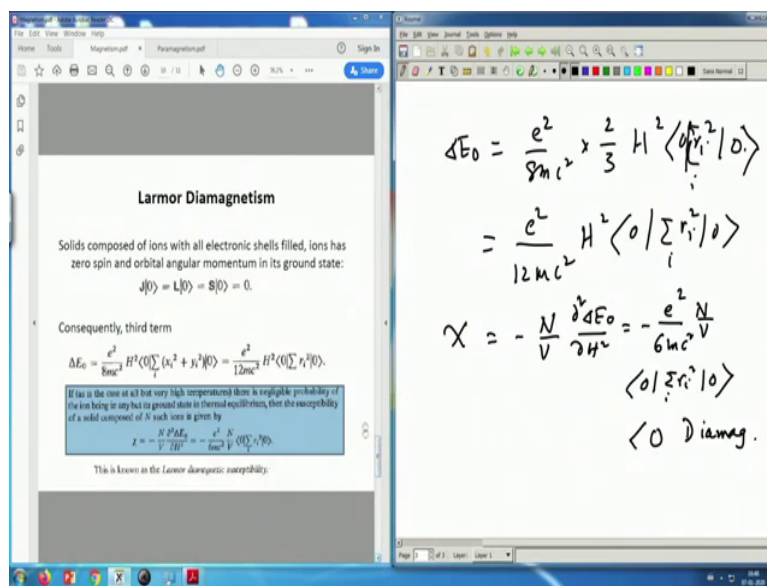 Magnetism.pdf - Adobe Acrobat Reader DC
File Edit View Window Help
Home Tools Magnetism.pdf × Paramagnetism.pdf Sign In
Share
Larmor Diamagnetism
Solids composed of ions with all electronic shells filled, ions has
zero spin and orbital angular momentum in its ground state:
J|0⟩ = L|0⟩ = S|0⟩ = 0.
Consequently, third term
ΔE₀ = e²/8mc² H²⟨0|∑ᵢ (xᵢ² + yᵢ²)|0⟩ = e²/12mc² H²⟨0|∑ rᵢ²|0⟩.
If (as is the case at all but very high temperatures) there is negligible probability of
the ion being in any but its ground state in thermal equilibrium, then the susceptibility
of a solid composed of N such ions is given by
χ = − N/V ∂²ΔE₀/∂H² = − e²/6mc² N/V ⟨0|∑ rᵢ²|0⟩.
This is known as the Larmor diamagnetic susceptibility.
Xournal
File Edit View Journal Tools Options Help
Sans Normal 12
ΔE₀ = e²/8mc² × 2/3 H² ⟨0|∑ᵢ rᵢ²|0⟩
= e²/12mc² H² ⟨0|∑ᵢ rᵢ²|0⟩
χ = − N/V ∂²ΔE₀/∂H² = − e²/6mc² N/V
⟨0|∑ᵢ rᵢ²|0⟩
<0 Diamag.
Page 3 of 3 Layer: Layer 1